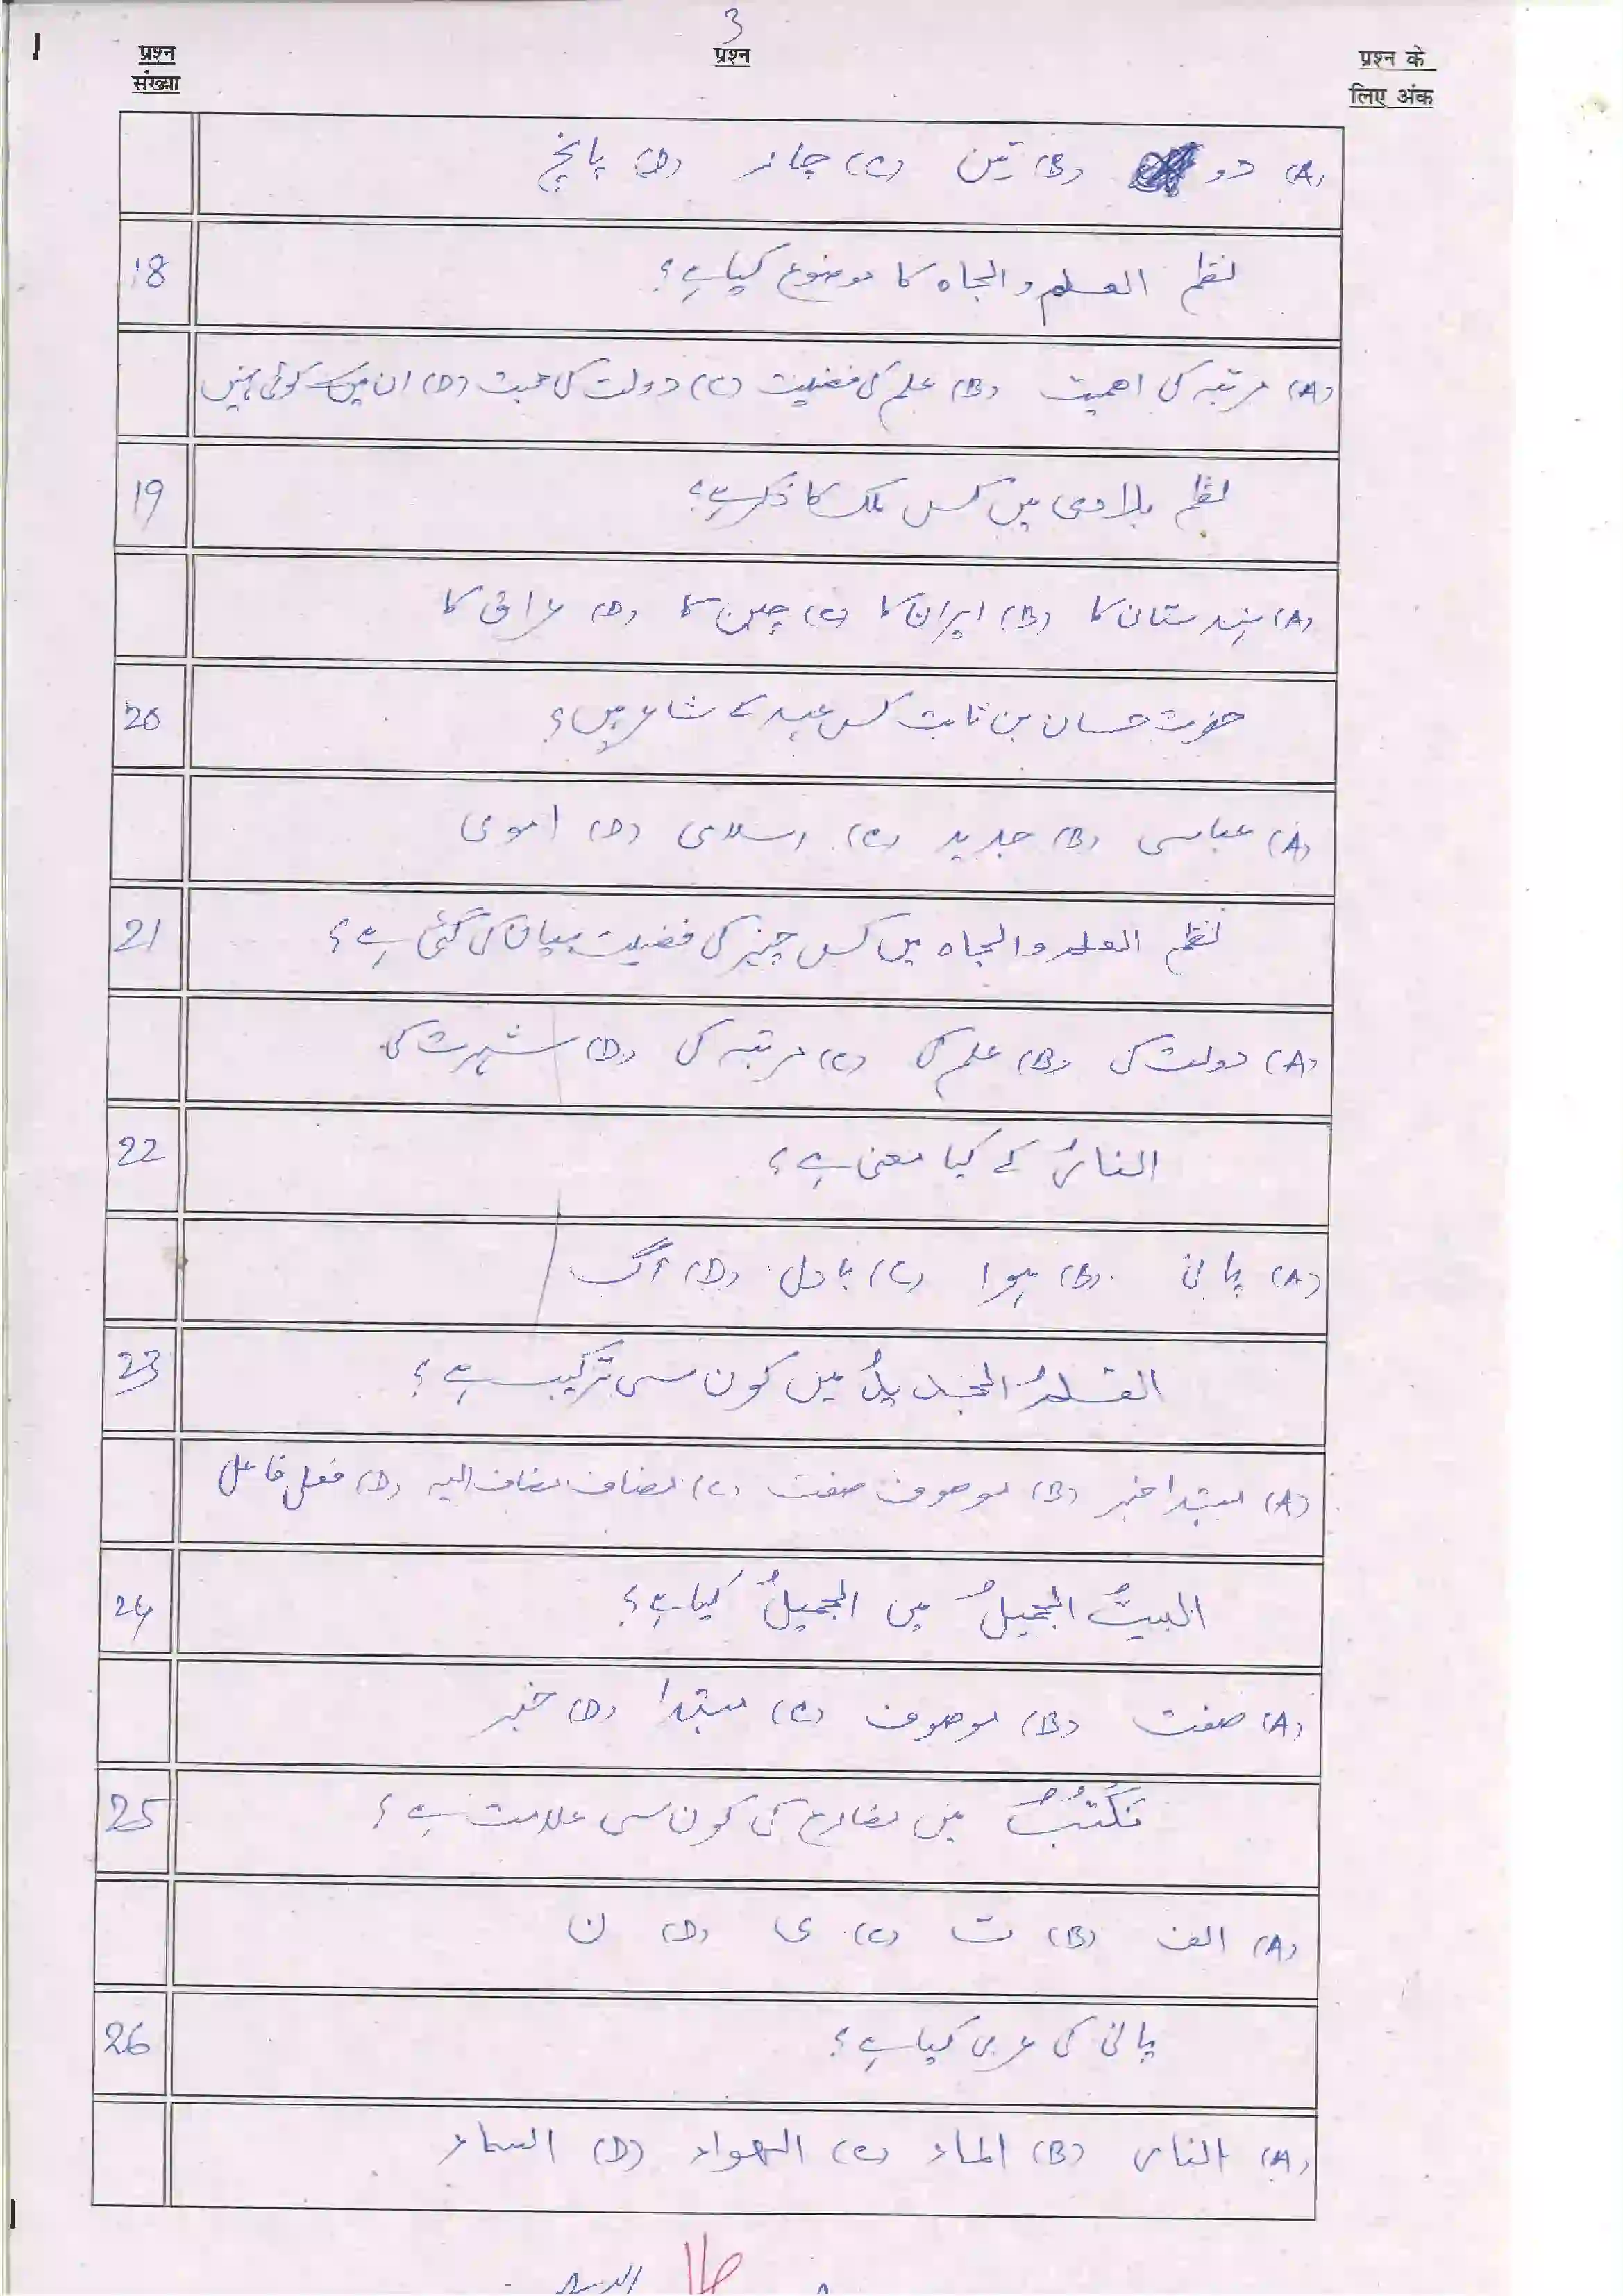 3
प्रश्न संख्या
प्रश्न
प्रश्न के लिए अंक
(A) دو (B) تین (C) چار (D) پانچ
18 نظم العلم والجاہ کا موضوع کیا ہے؟
(A) مرتبہ کی اہمیت (B) علم کی فضیلت (C) دولت کی محبت (D) ان میں سے کوئی نہیں
19 نظم بلادی میں کس ملک کا ذکر ہے؟
(A) ہندستان کا (B) ایران کا (C) چین کا (D) عراق کا
20 حضرت حسان بن ثابت کس عہد کے شاعر ہیں؟
(A) عباسی (B) جدید (C) اسلامی (D) اموی
21 نظم العلم والجاہ میں کس چیز کی فضیلت بیان کی گئی ہے؟
(A) دولت کی (B) علم کی (C) مرتبہ کی (D) شہرت کی
22 النارُ کے کیا معنی ہے؟
(A) پانی (B) ہوا (C) بادل (D) آگ
23 القلمُ الجدیدُ میں کون سی ترکیب ہے؟
(A) مبتدا خبر (B) موصوف صفت (C) مضاف مضاف الیہ (D) فعل فاعل
24 البیتُ الجمیلُ میں الجمیلُ کیا ہے؟
(A) صفت (B) موصوف (C) مبتدا (D) خبر
25 نَکْتُبُ میں مضارع کی کون سی علامت ہے؟
(A) الف (B) ت (C) ی (D) ن
26 پانی کی عربی کیا ہے؟
(A) النار (B) الماء (C) الھواء (D) السماء